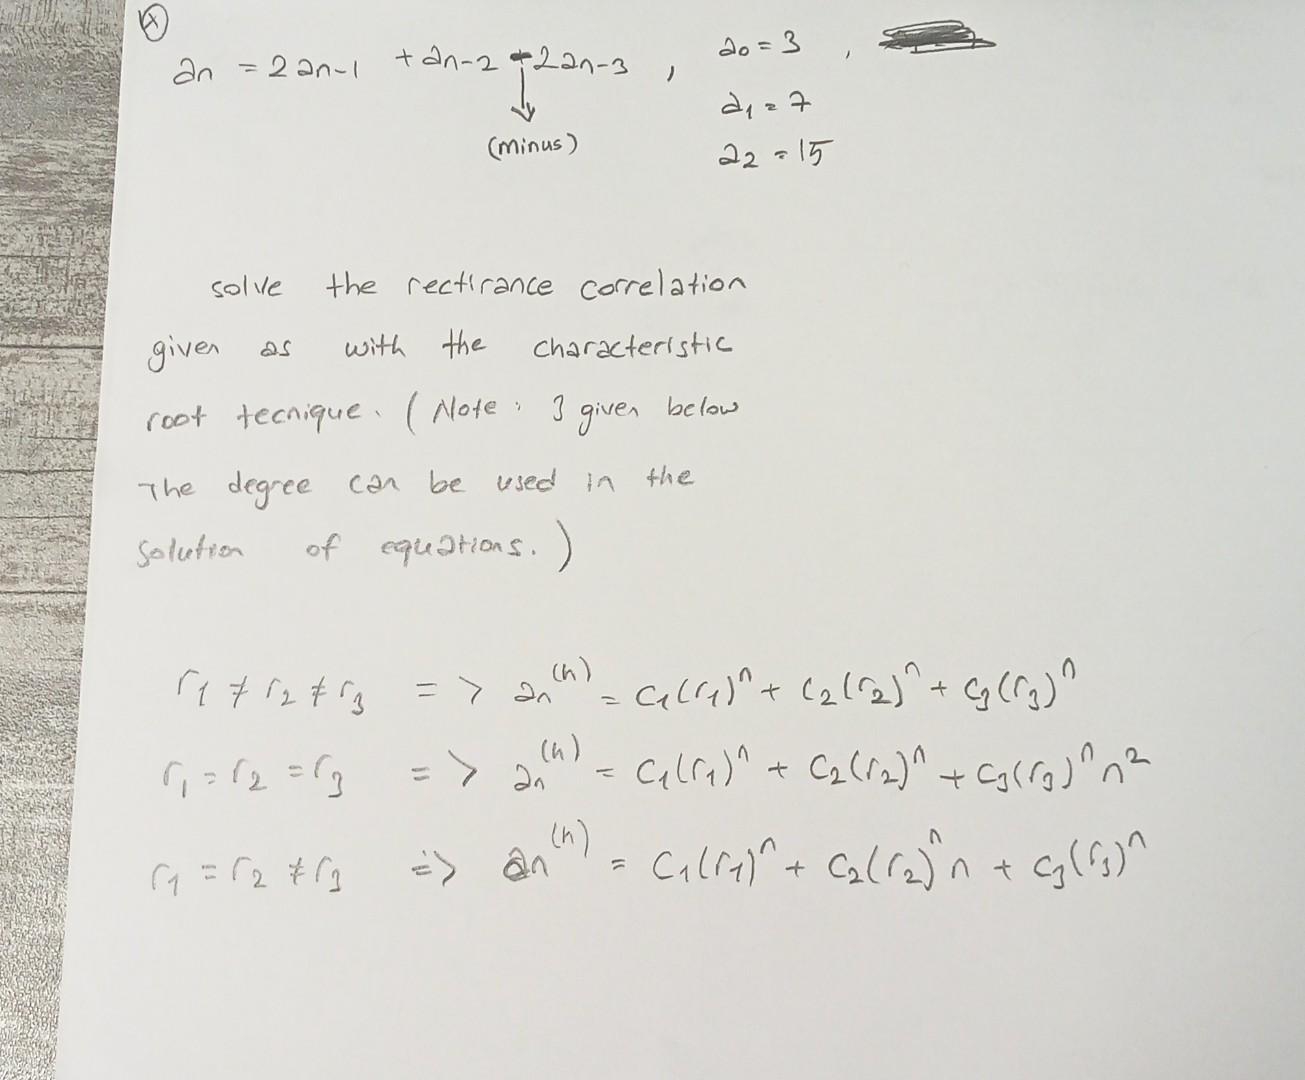 4
an = 2an-1 + an-2 - 2an-3 , a0 = 3 ,
a1 = 7
(minus)
a2 = 15
solve the rectirance correlation
given as with the characteristic
root tecnique. (Note: 3 given below
The degree can be used in the
solution of equations.)
r1 ≠ r2 ≠ r3 => an^(h) = c1(r1)^n + c2(r2)^n + c3(r3)^n
r1 = r2 = r3 => an^(h) = c1(r1)^n + c2(r2)^n + c3(r3)^n n^2
r1 = r2 ≠ r3 => an^(h) = c1(r1)^n + c2(r2)^n n + c3(r3)^n